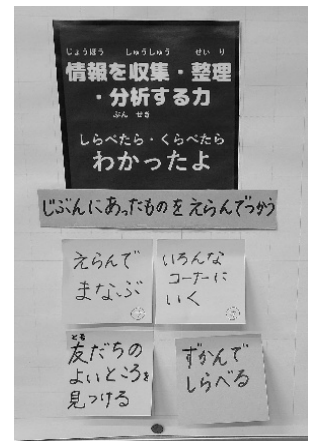 じょうほう しゅうしゅう せいり
情報を収集・整理
・分析する力
ぶんせき
しらべたら・くらべたら
わかったよ
じぶんにあったものをえらんでつかう
えらんで
まなぶ
いろんな
コーナーに
いく
とも
友だちの
よいところを
見つける
ずかんで
しらべる